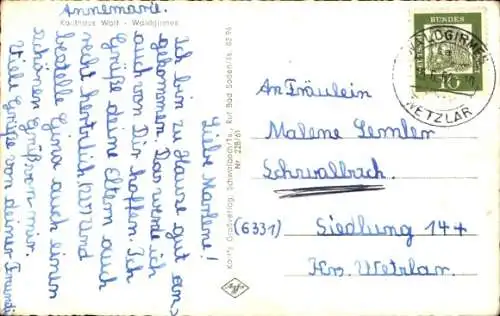 Kaufhaus Wolf - Waldgirmes
Liebe Marlene!
Ich bin zu Hause gut an-
gekommen. Das werde ich
auch von Dir hoffen. Ich
Grüße deine Eltern auch
recht herzlich, und
bestelle Gina auch einen
schönen Gruß von mir.
Viele Grüße von deiner Freundin
Annemarie.
Nr. 228/61
WALDGIRMES
WETZLAR
BUNDES
An Fräulein
Malene Semler
Schwalbach
(6331) Siedlung 14
Krs. Wetzlar